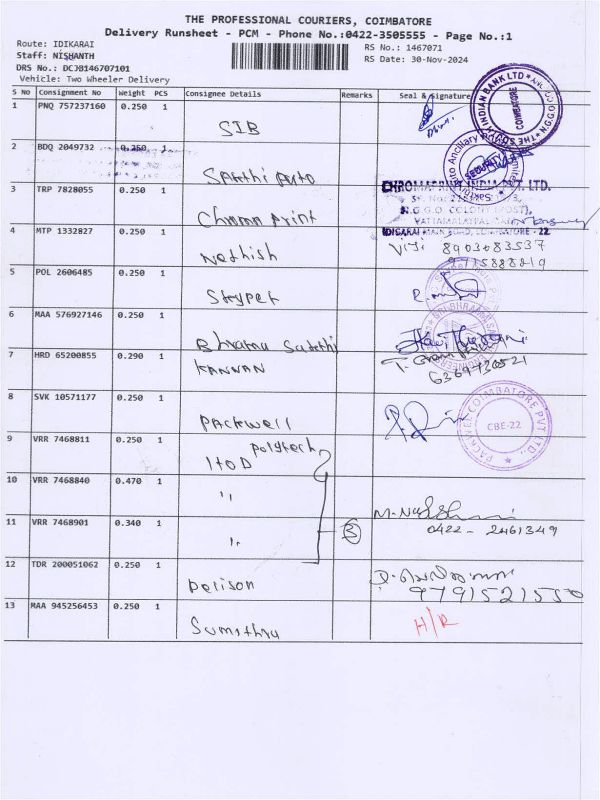 THE PROFESSIONAL COURIERS, COIMBATORE
Delivery Runsheet - PCM - Phone No.:0422-3505555 - Page No.:1
Route: IDIKARAI
RS No.: 1467071
Staff: NISHANTH
RS Date: 30-Nov-2024
DRS No.: DCJ0146707101
Vehicle: Two Wheeler Delivery
S No Consignment No Weight PCS Consignee Details Remarks Seal & Signature
1 PNQ 757237160 0.250 1 SIB
INDIAN BANK LTD COIMBATORE
2 BDQ 2049732 0.250 1 Sakthi Auto
SECURITY
3 TRP 7828055 0.250 1 Chroma Print
CHROMAPRINT INDIA PVT. LTD.
N.G.G.O. COLONY (POST),
IDIGARAI MAIN ROAD, COIMBATORE - 22
4 MTP 1332827 0.250 1 Nethish Viji 8903083537
5 POL 2606485 0.250 1 Skypet
6 MAA 576927146 0.250 1 Bharau Sakthi
7 HRD 65200855 0.290 1 KANNAN
6369730521
8 SVK 10571177 0.250 1 Packwell
PACKWEL COIMBATORE PVT LTD.,
CBE-22
9 VRR 7468811 0.250 1 ITOD Polytech
10 VRR 7468840 0.470 1 "
11 VRR 7468901 0.340 1 " 3
0422 - 2461349
12 TDR 200051062 0.250 1 Delison
9791521550
13 MAA 945256453 0.250 1 Sumithra H/R